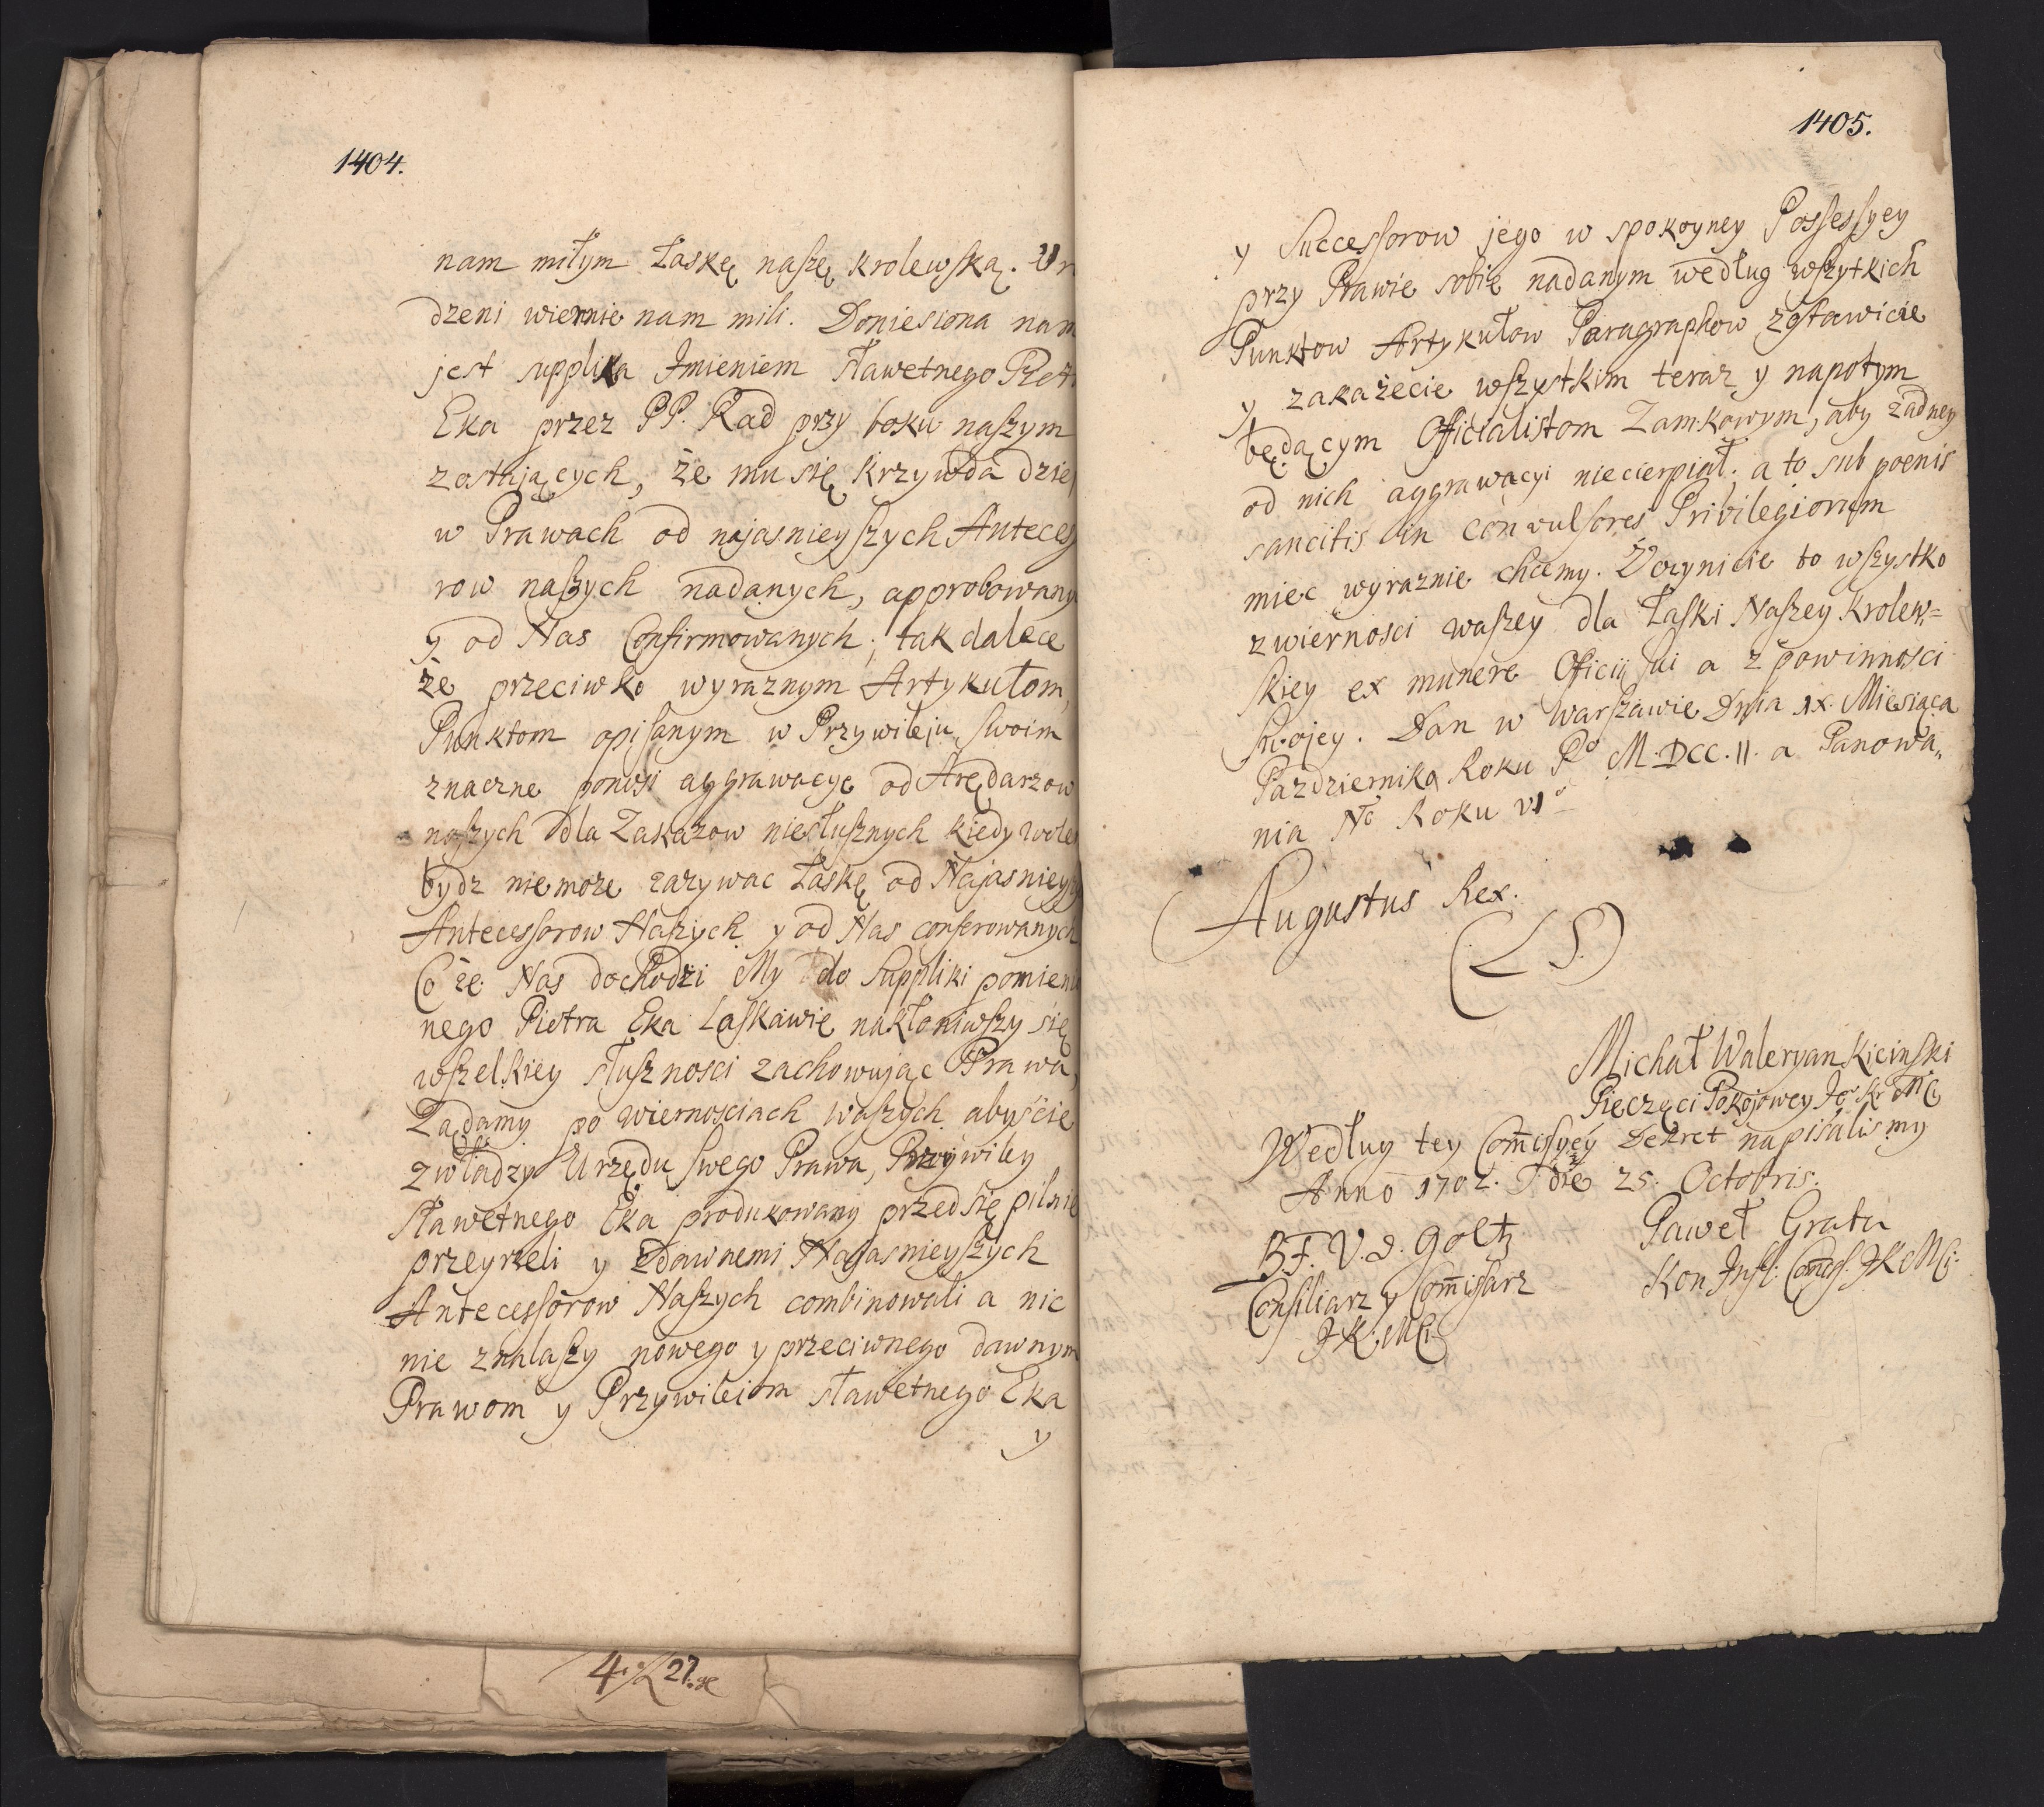 1404.
nam miłym Łaskę naszę krolewską. Ur
dzeni wiernie nam mili. Doniesiona nam
jest supplika Imieniem sławetnego Piet
Eka przez PP. Rad przy boku naszym
zostających, że mu się krzywda dziej
w Prawach od najasnieyszych Anteces
row naszych nadanych, approbowany
y od Nas Confirmowanych, tak dalece
że przeciwko wyraznym Artykułom,
Punktom opisanym w Przywileju swoim
znaczne ponosi aggrawacye od Arędarzow
naszych dla Zakazow niesłusznych kiedy wole
bydz nie może zazywac Łaskę od Najasnieysz
Antecessorow Naszych y od Nas conferowanych
Co że Nas dochodzi My do Suppliki pomieni
nego Pietra Eka Łaskawie nakłoniwszy się
wszelkiey słusznosci zachowując Prawa,
Żądamy po wiernosciach waszych abyście
z władzy Urzędu swego Prawa, Przywiley
sławetnego Eka produkowany przed się pilnie
przeyrzeli y z dawnemi Najasnieyszych
Antecessorow Naszych combinowali a nic
nie znalaszy nowego y przeciwnego dawnym
Prawom y Przywileiom sławetnego Eka
y
4. 27.
1405.
y Successorow jego w spokoyney Possessyey
przy Prawie sobie nadanym według wszytkich
Punktow Artykułow Paragraphow zostawicie
y zakażecie wszystkim teraz y napotym
będącym Officialistom Zamkowym, aby żadney
od nich aggrawacyi niecierpiał. a to sub poenis
sancitis in convulsores Privilegiorum
miec wyraznie chcemy. Uczynicie to wszystko
z wiernosci waszey dla Łaski Naszey krolew=
skiey ex munere Officij sui a z powinnosci
swojey. Dan w Warszawie Dnia IX. Miesiąca
Pazdziernika Roku Pº M.DCC.II. a Panowa„
nia Nº Roku VIº
Augustus Rex.
(L S.)
Michał Waleryan Kicinski
Pieczęci Pokojowey Jº Kr Mci
Według tey Comissyey Dekret napisalismy
Anno 1702. die 25. Octobris.
B. F. V. d. Goltz
Consiliarz y Comissarz
J K. Mci
Paweł Grata
Kon Insl. Comiss. J K Mci.